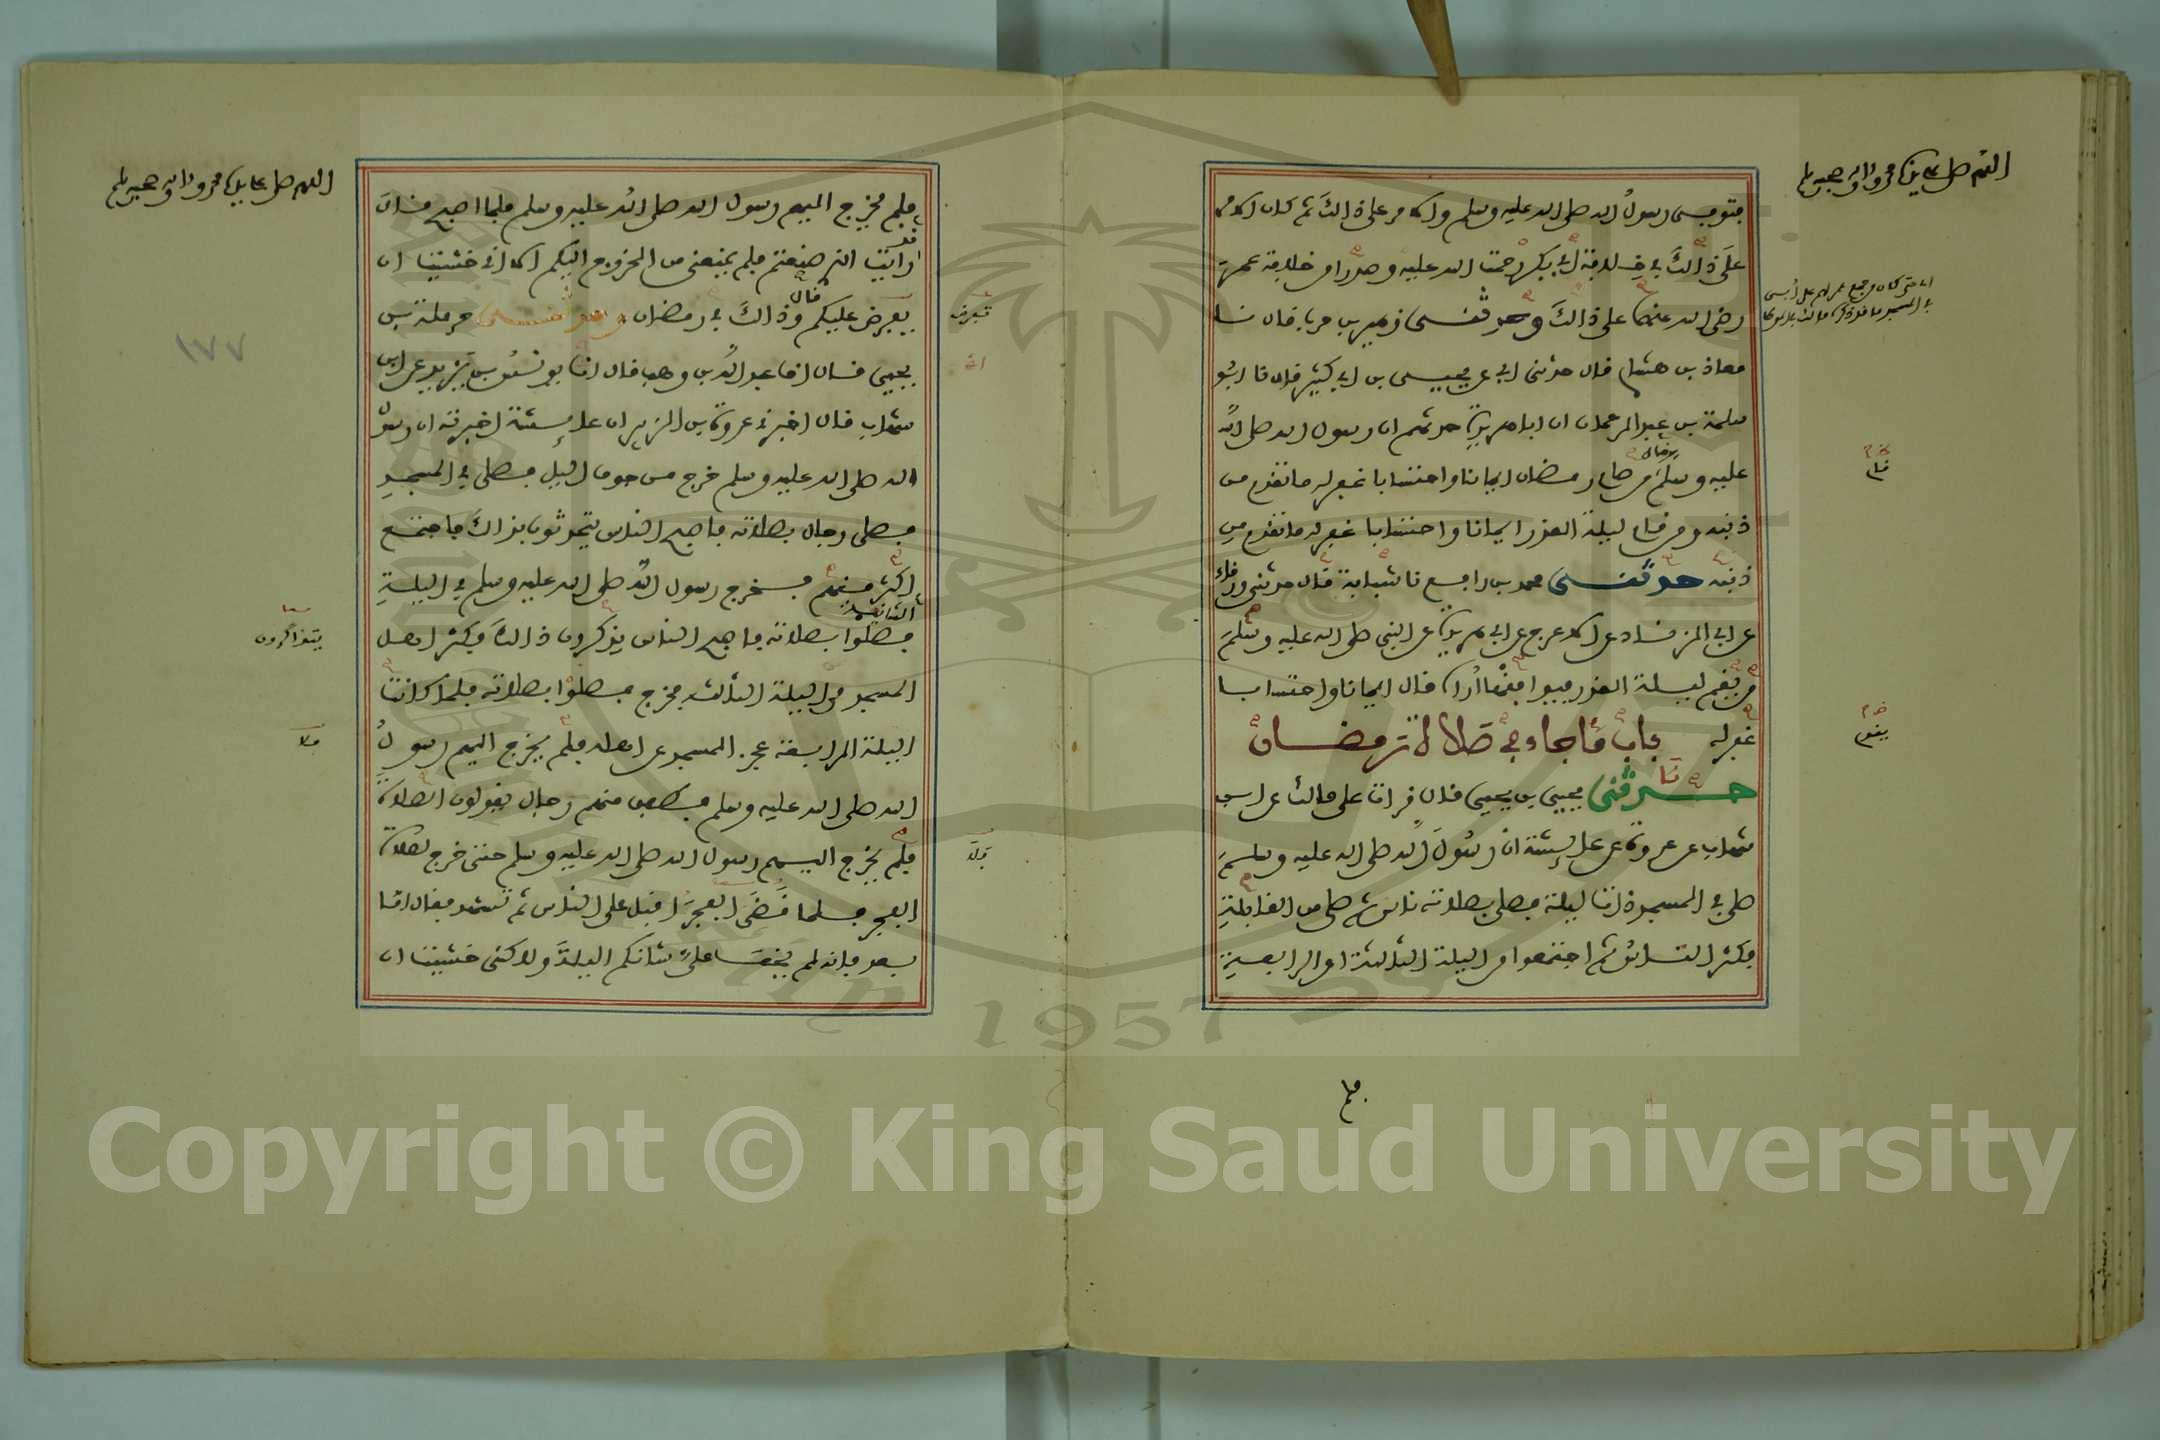 اللهم صل على سيدنا محمد واله وصحبه وسلم
فتوفي رسول الله صلى الله عليه وسلم والامر على ذالك ثم كان الامر
على ذالك في خلافة ابي بكر رحمت الله عليه وصدرا من خلافة عمر
رضي الله عنهما على ذالك وحدثني زهير بن حرب قال نا
معاذ بن هشام قال حدثني ابي عن يحيى بن ابي كثير قال نا ابو
سلمة بن عبد الرحمان ان ابا هريرة حدثهم ان رسول الله صلى الله
عليه وسلم قال من صام رمضان ايمانا واحتسابا غفر له ما تقدم من
ذنبه ومن قام ليلة القدر ايمانا واحتسابا غفر له ما تقدم من
ذنبه حدثني محمد بن رافع نا شبابة قال حدثني ورقاء
عن ابي الزناد عن الاعرج عن ابي هريرة عن النبي صلى الله عليه وسلم
من يقم ليلة القدر فيوافقها اراه قال ايمانا واحتسابا
غفر له باب ما جاء في صلاة رمضان
حدثني يحيى بن يحيى قال قرات على مالك عن ابن
شهاب عن عروة عن عايشة ان رسول الله صلى الله عليه وسلم
صلى في المسجد ذات ليلة فصلى بصلاته ناس ثم صلى من القابلة
فكثر الناس ثم اجتمعوا من الليلة الثالثة او الرابعة
فلم
قام
يقوم
اللهم صل على سيدنا محمد واله وصحبه وسلم
١٧٧
فلم يخرج اليهم رسول الله صلى الله عليه وسلم فلما اصبح قال
قد رايت الذي صنعتم فلم يمنعني من الخروج اليكم الا اني خشيت ان
يفرض عليكم قال وذالك في رمضان وحدثني حرملة بن
يحيى قال انا عبد الله بن وهب قال انا يونس بن يزيد عن ابن
شهاب قال اخبرني عروة بن الزبير ان عايشة اخبرته ان رسول
الله صلى الله عليه وسلم خرج من جوف اليل فصلى في المسجد
فصلى رجال بصلاته فاصبح الناس يتحدثون بذالك فاجتمع
اكثر منهم فخرج رسول الله صلى الله عليه وسلم في الليلة
الثانية فصلوا بصلاته فاصبح الناس يذكرون ذالك فكثر اهل
المسجد من الليلة الثالثة فخرج فصلوا بصلاته فلما كانت
الليلة الرابعة عجز المسجد عن اهله فلم يخرج اليهم رسول
الله صلى الله عليه وسلم فطفق منهم رجال يقولون الصلاة
فلم يخرج اليهم رسول الله صلى الله عليه وسلم حتى خرج لصلاة
الفجر فلما قضى الفجر اقبل على الناس ثم تشهد فقال اما
بعد فانه لم يخف على شانكم الليلة ولاكني خشيت ان
تفرض
يتذاكرون
Copyright © King Saud University
1957